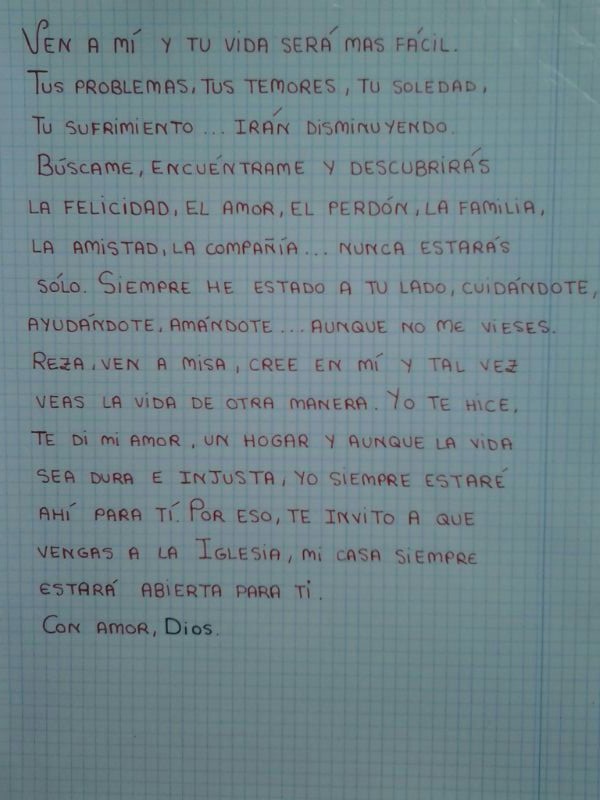 Ven a mí y tu vida será mas fácil.
Tus problemas, tus temores, tu soledad,
tu sufrimiento... irán disminuyendo.
Búscame, encuéntrame y descubrirás
la felicidad, el amor, el perdón, la familia,
la amistad, la compañía... nunca estarás
sólo. Siempre he estado a tu lado, cuidándote,
ayudándote, amándote... aunque no me vieses.
Reza, ven a misa, cree en mí y tal vez
veas la vida de otra manera. Yo te hice,
te di mi amor, un hogar y aunque la vida
sea dura e injusta, yo siempre estaré
ahí para tí. Por eso, te invito a que
vengas a la Iglesia, mi casa siempre
estará abierta para ti.
Con amor, Dios.